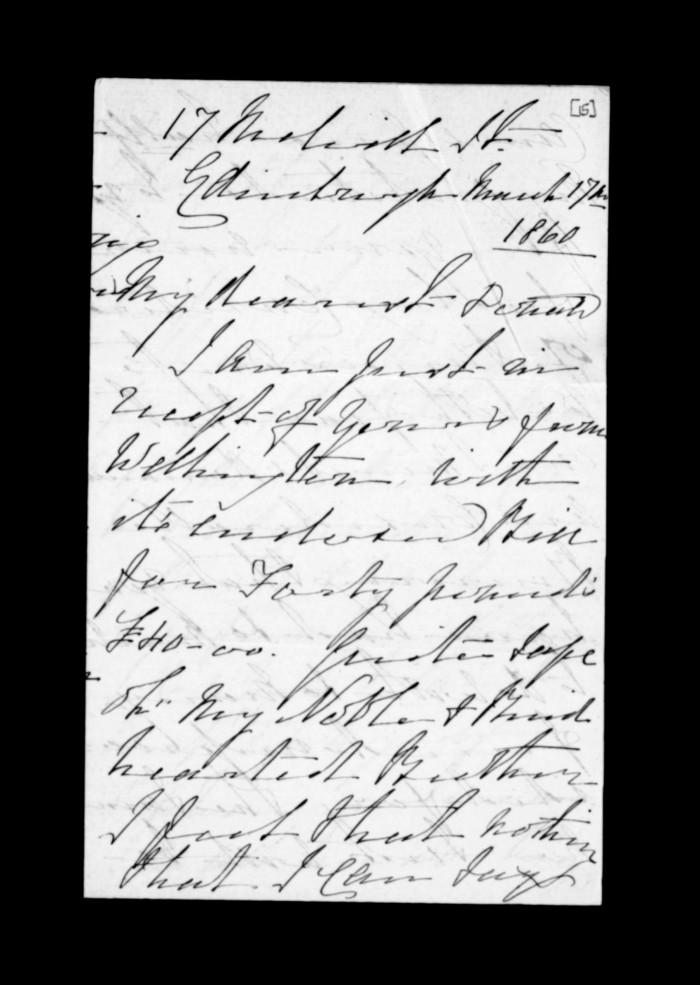 [15]
17 Melvill St.
Edinburgh March 17th
1860
My dearest Donald
I am just in
receipt of yours from
Wellington with
its enclosed Bill
for Forty pounds
£40-00. Quite safe
Oh" My Noble & Kind
hearted Brother
I feel that nothing
that I can say